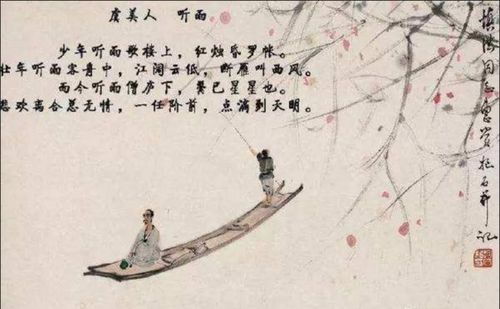 虞美人 听雨
少年听雨歌楼上，红烛昏罗帐。
壮年听雨客舟中，江阔云低，断雁叫西风。
而今听雨僧庐下，鬓已星星也。
悲欢离合总无情，一任阶前，点滴到天明。
同志